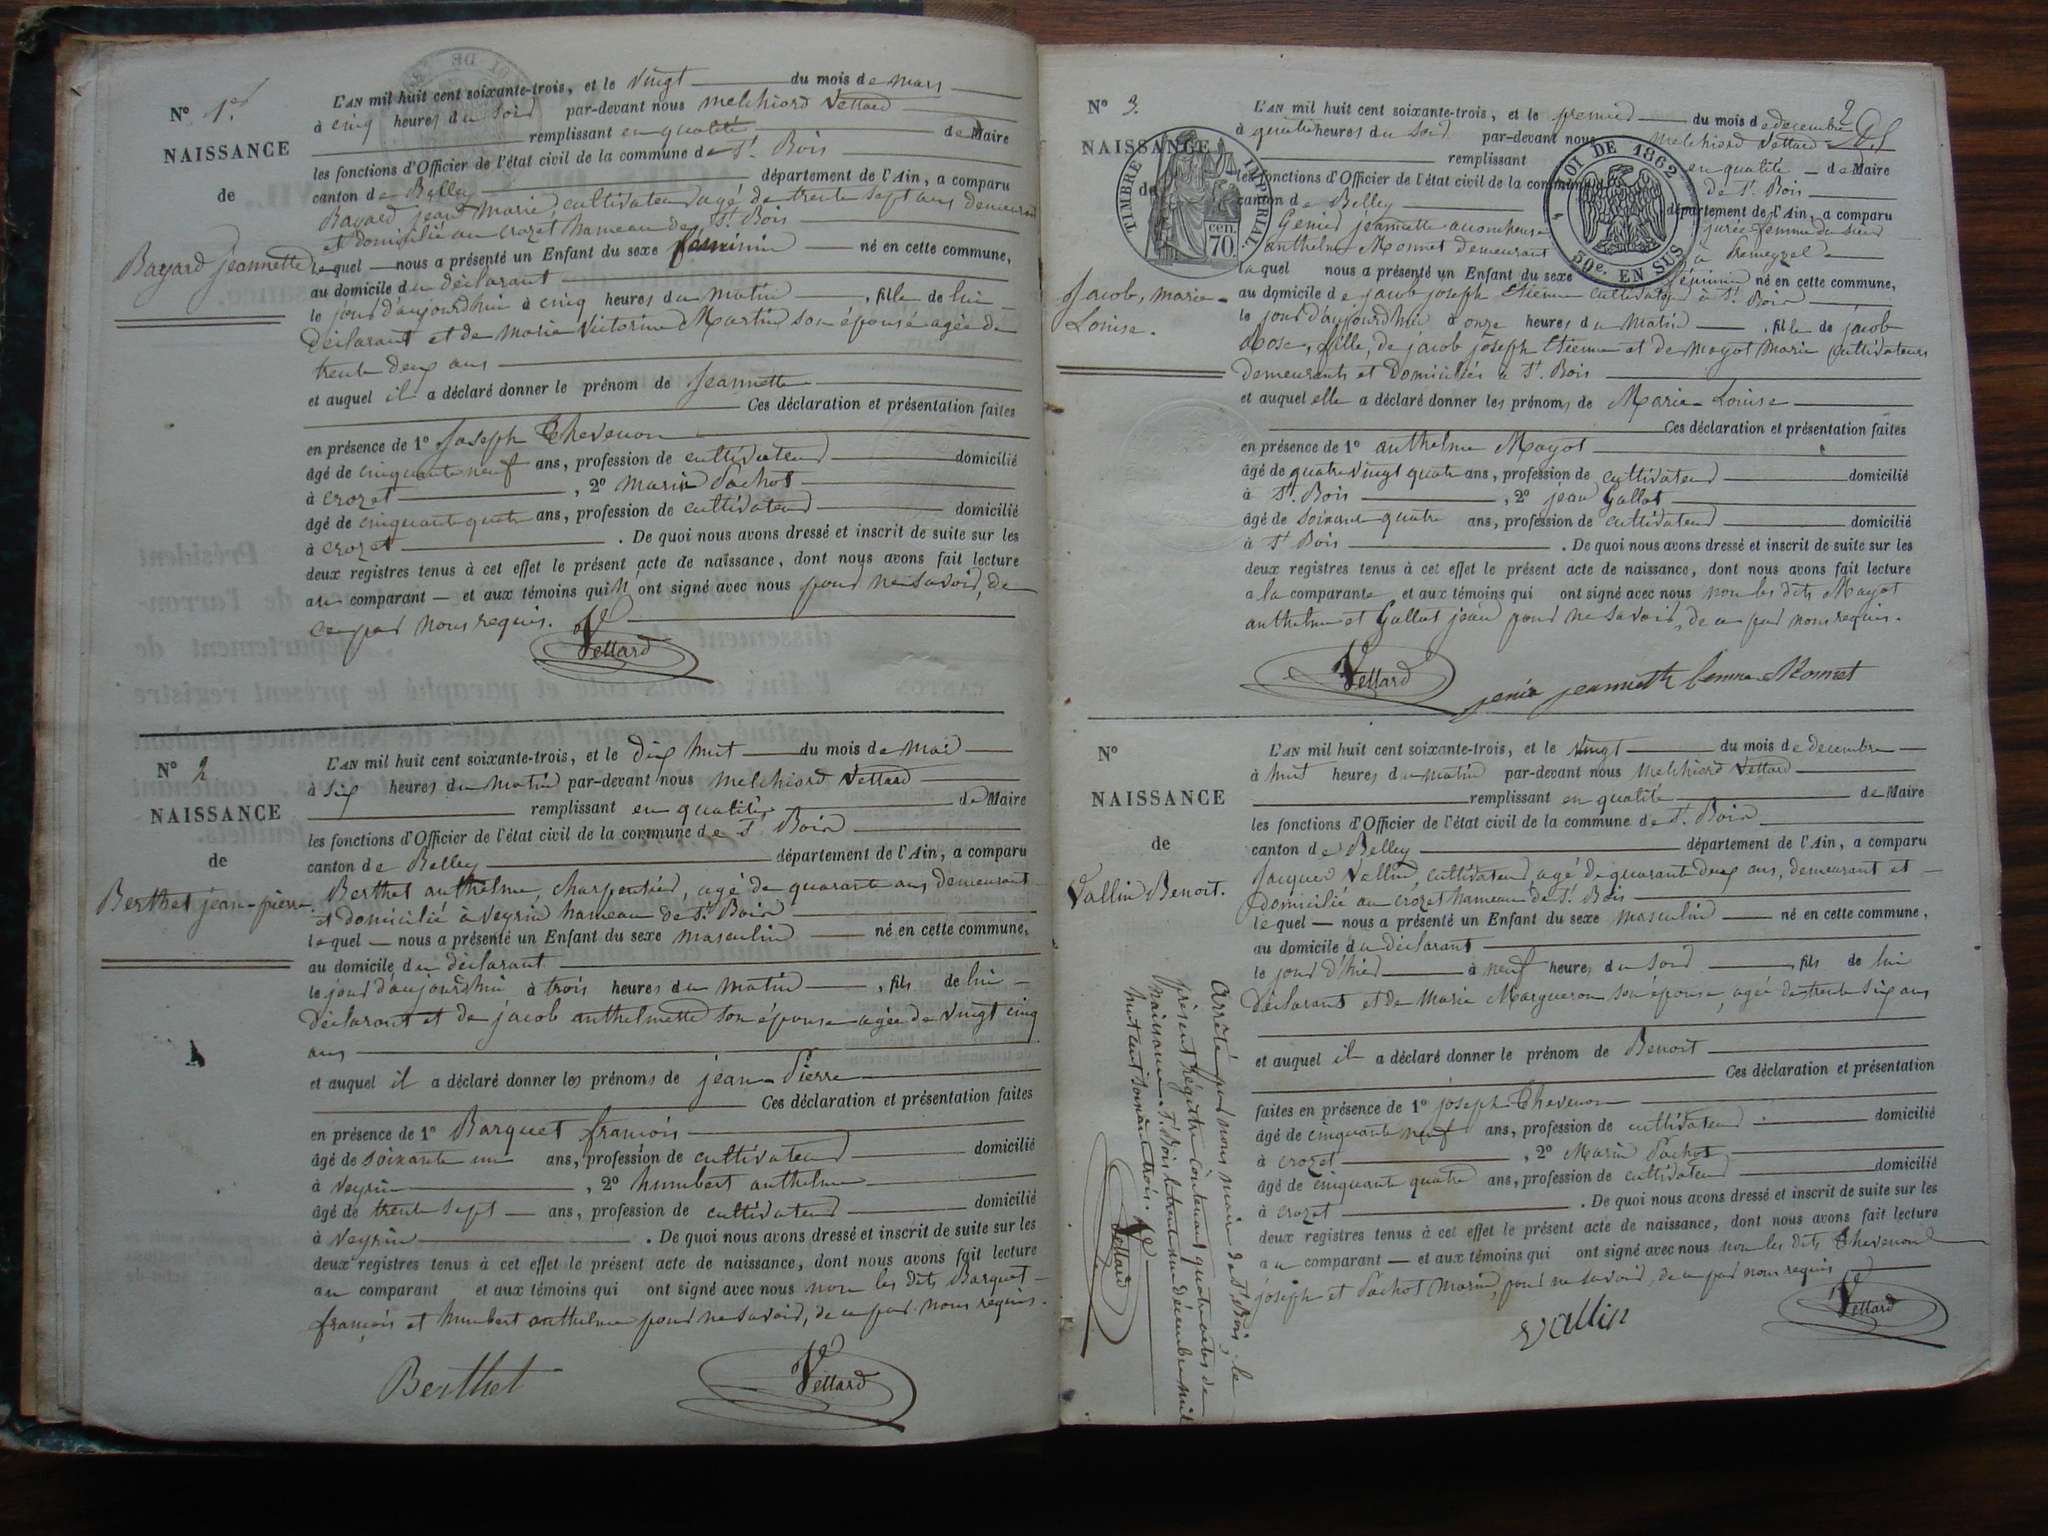 N° 1er
NAISSANCE
de
Bayard Jeannette
L'AN mil huit cent soixante-trois, et le vingt du mois de mars
à cinq heures du soir par-devant nous melchiord Vettard
remplissant en qualité de Maire
les fonctions d'Officier de l'état civil de la commune de St. Bois
canton de Belley département de l'Ain, a comparu
Bayard jean marie, cultivateur agé de trente sept ans demeurant
et domicilié au crozet hameau de St Bois
lequel nous a présenté un Enfant du sexe féminin né en cette commune,
au domicile du déclarant
le jour d'aujourd'hui à cinq heures du matin, fille de lui
déclarant et de marie Victorine Martin son épouse agée de
trente deux ans
et auquel il a déclaré donner le prénom de Jeannette
Ces déclaration et présentation faites
en présence de 1° Joseph Thevenon
âgé de cinquante neuf ans, profession de cultivateur domicilié
à crozet, 2° marin Pachot
âgé de cinquante quatre ans, profession de cultivateur domicilié
à crozet. De quoi nous avons dressé et inscrit de suite sur les
deux registres tenus à cet effet le présent acte de naissance, dont nous avons fait lecture
au comparant et aux témoins qui n'ont signé avec nous pour ne savoir, de
ce par nous requis.
Vettard
N° 2
NAISSANCE
de
Berthet jean-pierre.
L'AN mil huit cent soixante-trois, et le dix huit du mois de mai
à six heures du matin par-devant nous melchiord Vettard
remplissant en qualité de Maire
les fonctions d'Officier de l'état civil de la commune de St. Bois
canton de Belley département de l'Ain, a comparu
Berthet anthelme, charpentier, agé de quarante ans demeurant
et domicilié à Veyrin hameau de St Bois
lequel nous a présenté un Enfant du sexe masculin né en cette commune,
au domicile du déclarant
le jour d'aujourd'hui à trois heures du matin, fils de lui
déclarant et de jacob anthelmette son épouse agée de vingt cinq
ans
et auquel il a déclaré donner les prénoms de jean-Pierre
Ces déclaration et présentation faites
en présence de 1° Barquet françois
âgé de soixante un ans, profession de cultivateur domicilié
à Veyrin, 2° humbert anthelme
âgé de trente sept ans, profession de cultivateur domicilié
à Veyrin. De quoi nous avons dressé et inscrit de suite sur les
deux registres tenus à cet effet le présent acte de naissance, dont nous avons fait lecture
au comparant et aux témoins qui ont signé avec nous non les dits Barquet
françois et humbert anthelme pour ne savoir, de ce par nous requis.
Berthet
Vettard
N° 3.
NAISSANCE
de
Jacob, marie-
Louise.
TIMBRE IMPERIAL.
cen.
70.
LOI DE 1862
50e. EN SUS
2
L'AN mil huit cent soixante-trois, et le premier du mois de decembre
à quatre heures du soir par-devant nous melchiord Vettard
remplissant en qualité de Maire
les fonctions d'Officier de l'état civil de la commune de St. Bois
canton de Belley département de l'Ain, a comparu
Génier jeannette accoucheuse jurée femme du sieur
anthelme Monnet demeurant à Premeyzel
laquel nous a présenté un Enfant du sexe féminin né en cette commune,
au domicile de jacob joseph Etienne cultivateur à St. Bois
le jour d'aujourd'hui à onze heures du matin, fille de jacob
Rose, fille, de jacob joseph Etienne et de Mayot Marie cultivateurs
demeurants et domiciliés à St. Bois
et auquel elle a déclaré donner les prénoms de Marie-Louise
Ces déclaration et présentation faites
en présence de 1° anthelme Mayot
âgé de quatre vingt quatre ans, profession de cultivateur domicilié
à St. Bois, 2° jean Gallot
âgé de soixante quatre ans, profession de cultivateur domicilié
à St Bois. De quoi nous avons dressé et inscrit de suite sur les
deux registres tenus à cet effet le présent acte de naissance, dont nous avons fait lecture
a la comparante et aux témoins qui ont signé avec nous non les dits Mayot
anthelme et Gallot jean pour ne savoir, de ce par nous requis.
Vettard
jenier jeannette femme Monnet
N°
NAISSANCE
de
Vallin Benoit.
L'AN mil huit cent soixante-trois, et le vingt du mois de decembre
à huit heures du matin par-devant nous Melchiord Vettard
remplissant en qualité de Maire
les fonctions d'Officier de l'état civil de la commune de St. Bois
canton de Belley département de l'Ain, a comparu
Jacques Vallin, cultivateur, agé de quarante deux ans, demeurant et
domicilié au crozet hameau de St. Bois
lequel nous a présenté un Enfant du sexe masculin né en cette commune,
au domicile du déclarant
le jour d'hier à neuf heures du soir, fils de lui
déclarant et de Marie Margueron son épouse, agée de trente six ans
et auquel il a déclaré donner le prénom de Benoit
Ces déclaration et présentation
faites en présence de 1° joseph Thevenon
âgé de cinquante neuf ans, profession de cultivateur domicilié
à crozet, 2° Marin Pachot
âgé de cinquante quatre ans, profession de cultivateur domicilié
à crozet. De quoi nous avons dressé et inscrit de suite sur les
deux registres tenus à cet effet le présent acte de naissance, dont nous avons fait lecture
au comparant et aux témoins qui ont signé avec nous non les dits Thevenon
joseph et Pachot Marin, pour ne savoir, de ce par nous requis
vallin
Vettard
Arrêté par nous maire de St. Bois, le
présent régistre contenant quatre actes de
naissance. St. Bois le trente un décembre mil
huit cent soixante trois.
Vettard